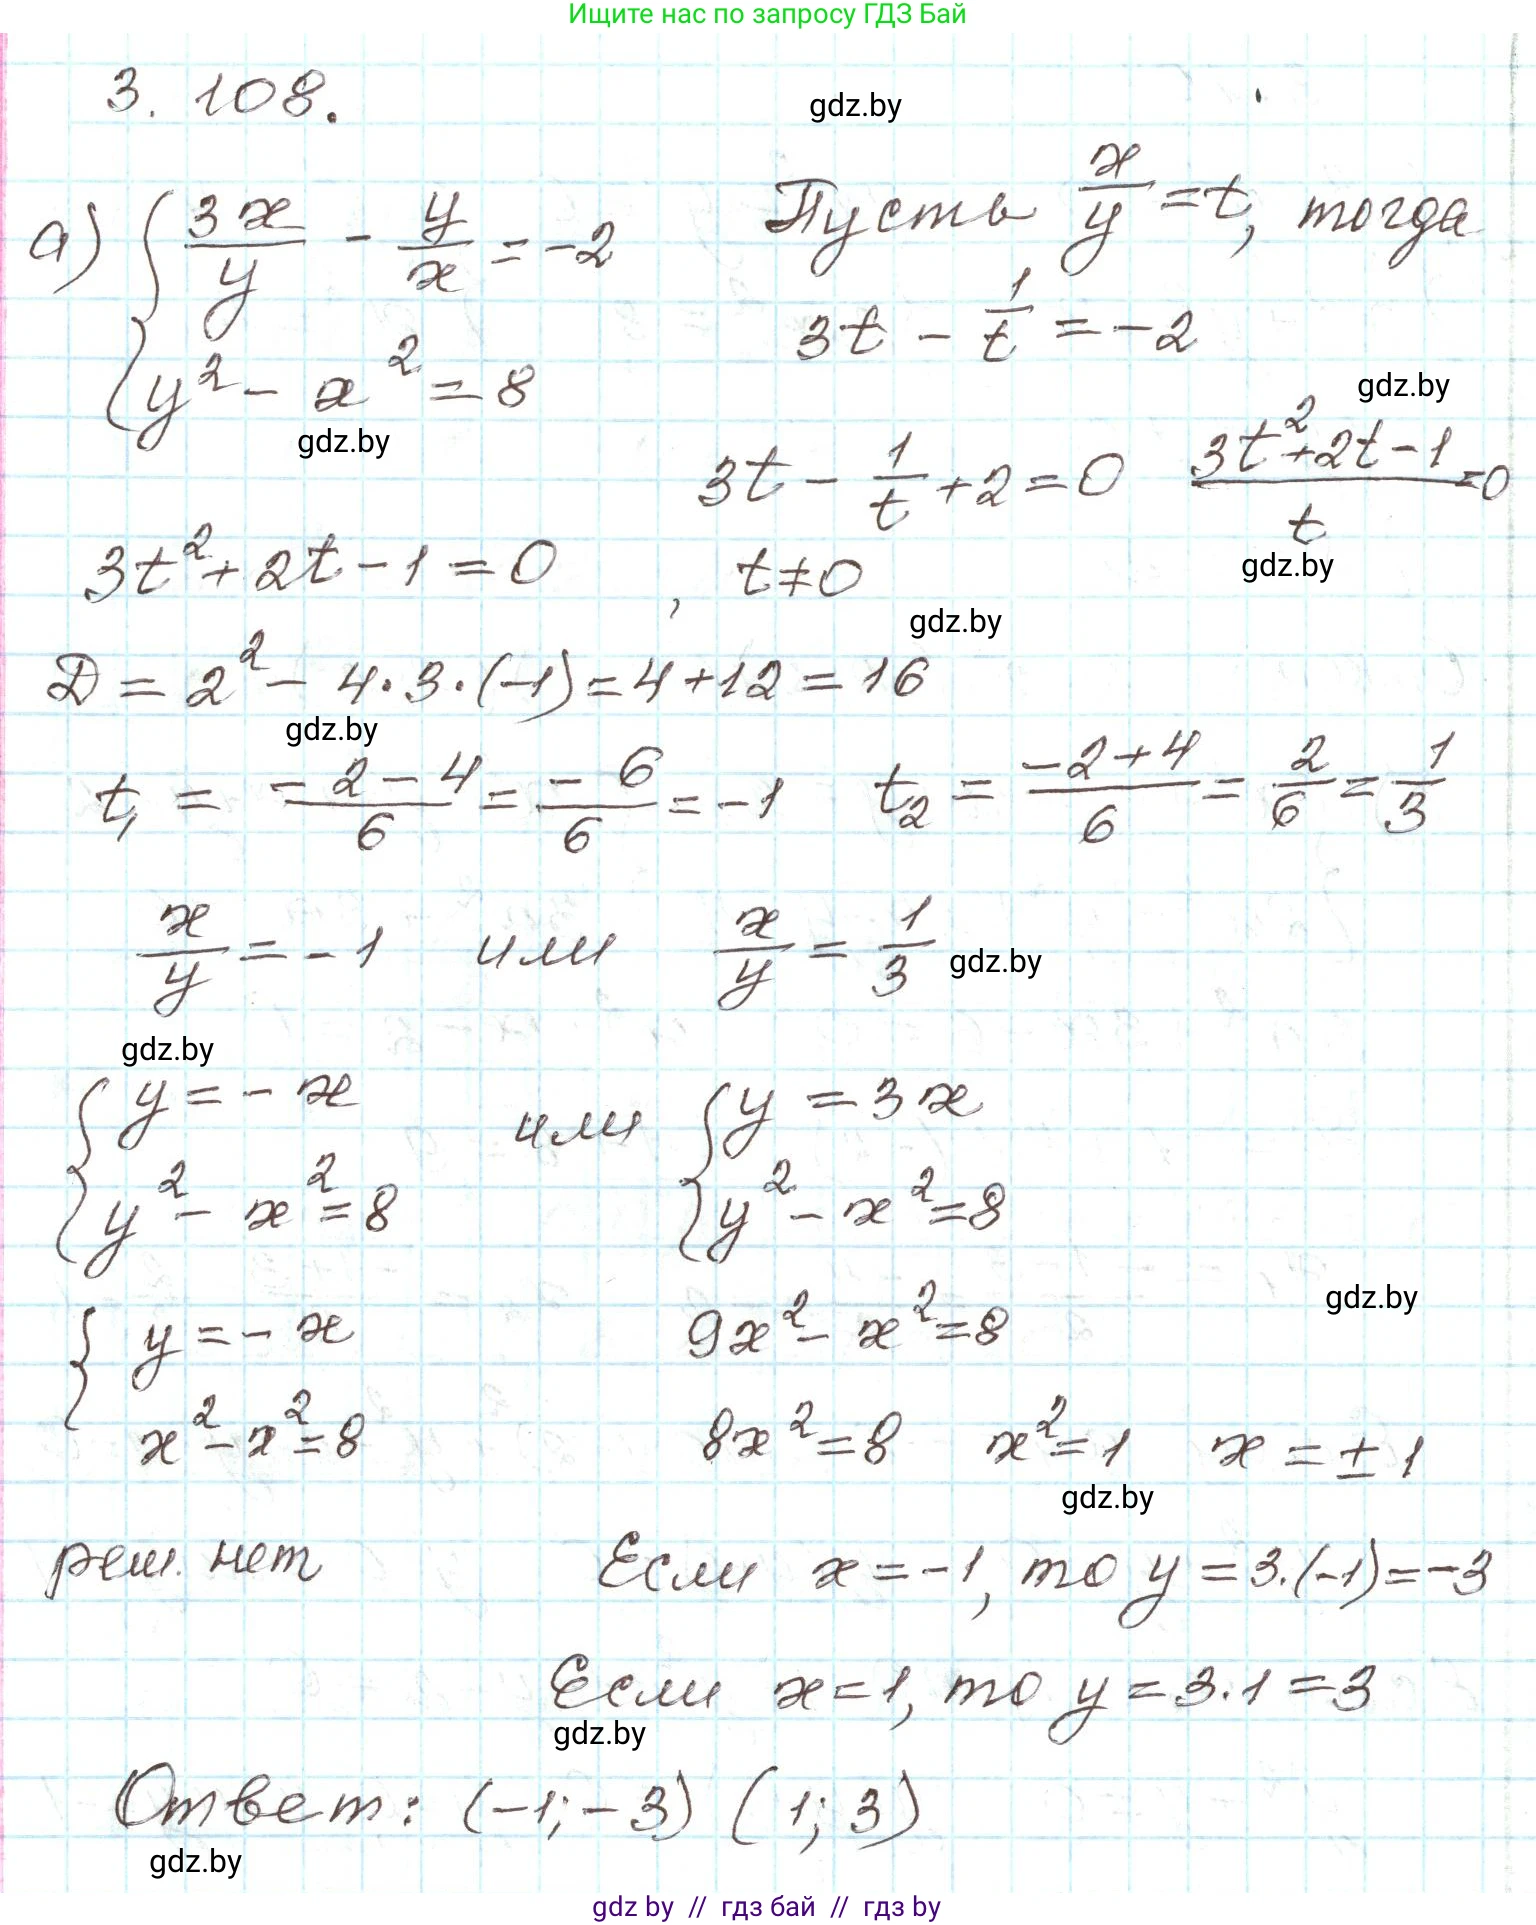 Ищите нас по запросу ГДЗ Бай
3. 108.
gdz.by
а) { 3x/y - y/x = -2
Пусть x/y = t, тогда
3t - 1/t = -2
y² - x² = 8
gdz.by
gdz.by
3t - 1/t + 2 = 0    (3t² + 2t - 1)/t = 0
gdz.by
3t² + 2t - 1 = 0 , t ≠ 0
gdz.by
D = 2² - 4·3·(-1) = 4 + 12 = 16
gdz.by
t₁ = (-2-4)/6 = -6/6 = -1    t₂ = (-2+4)/6 = 2/6 = 1/3
x/y = -1 или x/y = 1/3
gdz.by
gdz.by
{ y = -x или { y = 3x
y² - x² = 8    y² - x² = 8
gdz.by
{ y = -x    9x² - x² = 8
x² - x² = 8    8x² = 8    x² = 1    x = ±1
gdz.by
реш. нет    Если x = -1, то y = 3·(-1) = -3
Если x = 1, то y = 3·1 = 3
gdz.by
Ответ: (-1; -3) (1; 3)
gdz.by
gdz by // гдз бай // гдз by